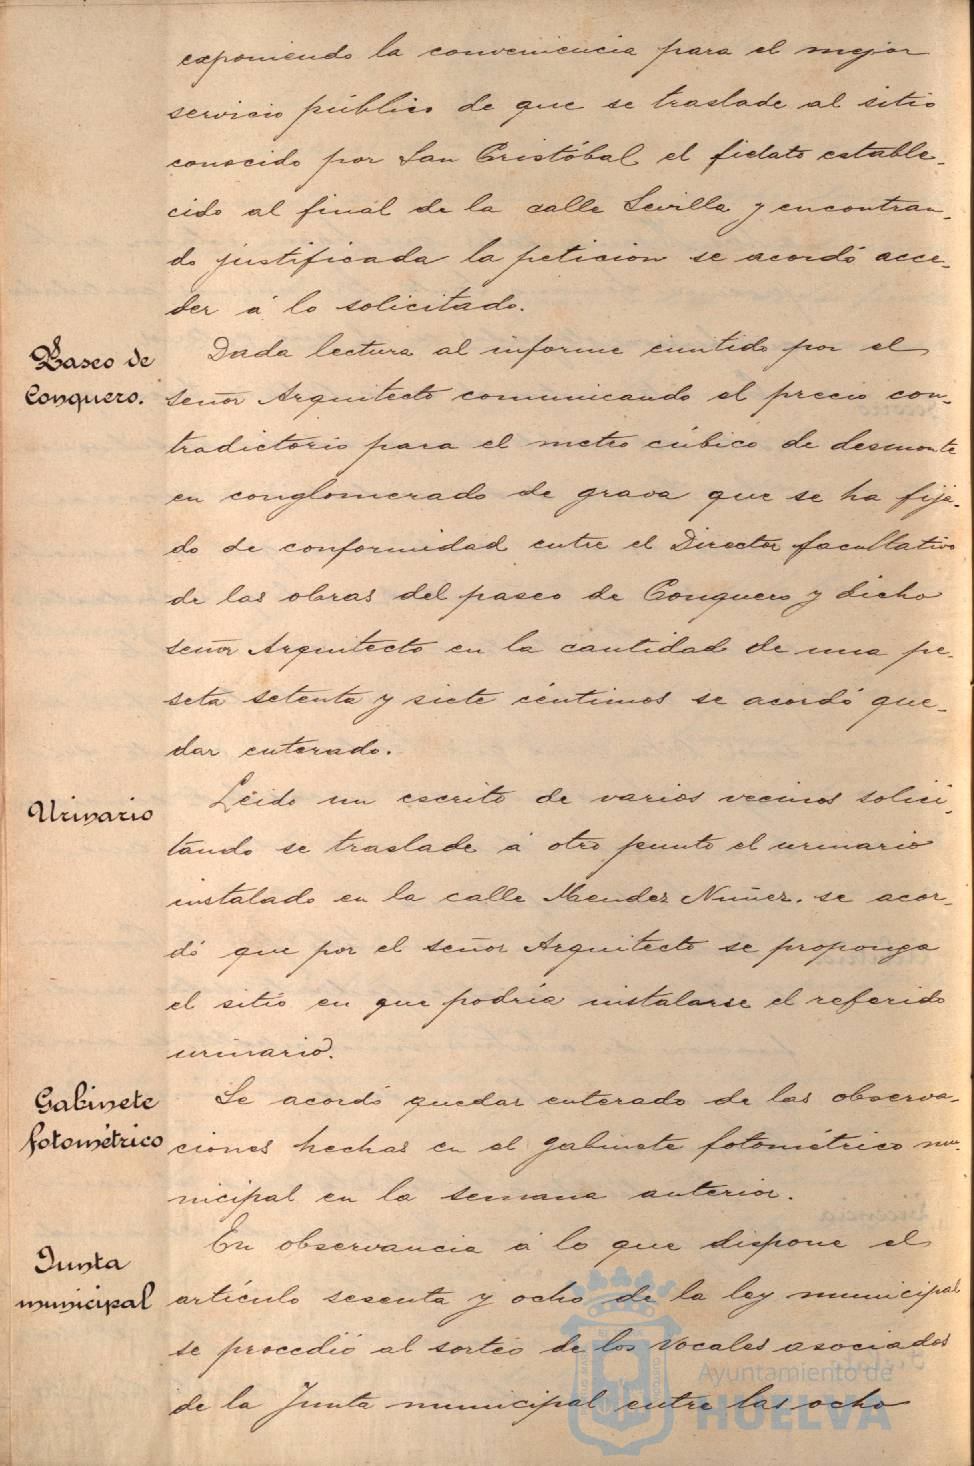 exponiendo la conveniencia para el mejor
servicio público de que se traslade al sitio
conocido por San Cristóbal el fielato estable-
cido al final de la calle Sevilla y encontran-
do justificada la peticion se acordó acce-
der á lo solicitado.
Paseo de
Conquero.
Dada lectura al informe emitido por el
señor Arquitecto comunicando el precio con-
tradictorio para el metro cúbico de desmonte
en conglomerado de grava que se ha fija-
do de conformidad entre el Director facultativo
de las obras del paseo de Conquero y dicho
señor Arquitecto en la cantidad de una pe-
seta setenta y siete céntimos se acordó que-
dar enterado.
Urinario
Léido un escrito de varios vecinos solici-
tando se traslade á otro punto el urinario
instalado en la calle Mendez Nuñez. se acor-
dó que por el señor Arquitecto se proponga
el sitio en que podría instalarse el referido
urinario.
Gabinete
fotométrico
Se acordó quedar enterado de las observa-
ciones hechas en el gabinete fotométrico mu-
nicipal en la semana anterior.
Junta
municipal
En observancia á lo que dispone el
artículo sesenta y ocho de la ley municipal
se procedió al sorteo de los vocales asociados
de la Junta municipal entre las ocho
Ayuntamiento de
HUELVA